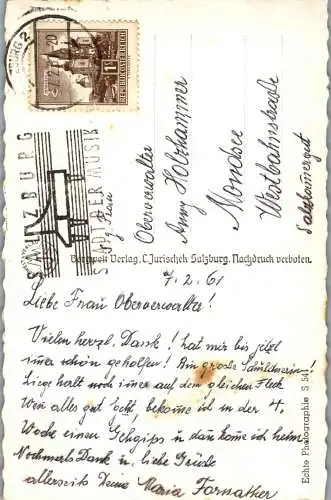 ZBURG 2
20
1 S
REPUBLIK ÖSTERREICH
SALZBURG
STADT DER MUSIK
Frau
Oberverwalter
Anny Holzhammer
Mondsee
Westbahnstraße
Salzkammergut
Bergwelt Verlag, C. Jurischek Salzburg. Nachdruck verboten.
Echte Photographie S 54
7.2.61
Liebe Frau Oberverwalter!
Vielen herzl. Dank! hat mir bis jetzt
imer schön geholfen! Bin große Schuldnerin!
Liege halt noch imer auf dem gleichen Fleck
Wen alles gut geht, bekome ich in der 4.
Woche einen Gehgips u dan kome ich heim
Nochmals Dank u. liebe Grüße
allerseits Deine Maria Fornather